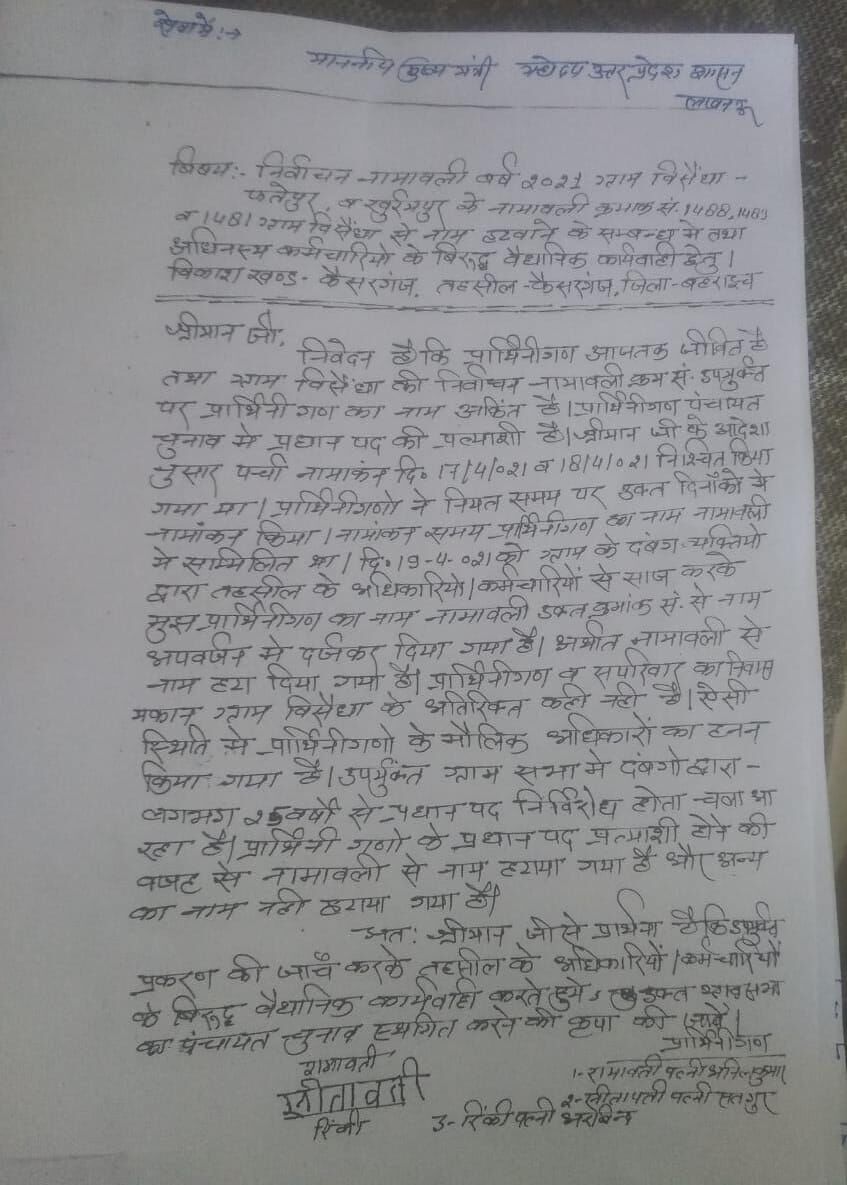 सेवामें:→
माननीय मुख्य मंत्री महोदय उत्तर प्रदेश शासन
लखनऊ
विषय:- निर्वाचन नामावली वर्ष 2021 ग्राम विसैंधा -
फतेपुर, व खुर्रमपुर के नामावली क्रमांक सं. 1488, 1483
व 1481 ग्राम विसैंधा से नाम हटवाने के सम्बन्ध मे तथा
अधिनस्थ कर्मचारियो के विरूद्ध वैधानिक कार्यवाही हेतु।
विकाश खण्ड - कैसरगंज, तहसील - कैसरगंज, जिला - बहराइच
श्रीमान जी,
निवेदन है कि प्रार्थिनीगण आजतक जीवित है
तथा ग्राम विसैंधा की निर्वाचन नामावली क्रम सं. उपर्युक्त
पर प्रार्थिनी गण का नाम अकिंत है। प्रार्थिनीगण पंचायत
चुनाव मे प्रधान पद की प्रत्याशी है। श्रीमान जी के आदेशा
नुसार पर्चा नामाकंन दि० 17/4/021 व 18/4/021 निश्चित किया
गया था। प्रार्थिनीगणो ने नियत समय पर उक्त दिनाँको मे
नामांकन किया। नामांकन समय प्रार्थिनीगण का नाम नामावली
मे साम्मिलित था। दि० 19-4-021 को ग्राम के दबंग व्यक्तियो
द्वारा तहसील के अधिकारियो/कर्मचारियों से साज करके
मुझ प्रार्थिनीगण का नाम नामावली उक्त क्रमांक सं. से नाम
अपवर्जन मे दर्जकर दिया गया है। अर्थात नामावली से
नाम हटा दिया गया है। प्रार्थिनीगण व सपरिवार का निवास
मकान ग्राम विसैंधा के अतिरिक्त कही नही है। ऐसी
स्थिति मे प्रार्थिनीगणो के मौलिक अधिकारों का हनन
किया गया है। उपर्युक्त ग्राम सभा मे दंबगो द्वारा -
लगभग 25 वर्षो से प्रधान पद निर्विरोध होता चला आ
रहा है। प्रार्थिनी गणो के प्रधान पद प्रत्याशी होने की
वजह से नामावली से नाम हटाया गया है और अन्य
का नाम नही हटाया गया है।
अतः श्रीमान जी से प्रार्थना है कि उपर्युक्त
प्रकरण की जाचँ करके तहसील के अधिकारियों/कर्मचारियों
के विरूद्ध वैधानिक कार्यवाही करते हुये, उक्त ग्राम सभा
का पंचायत चुनाव स्थगित करने की कृपा की जावें।
प्रार्थिनीगण
रामावती
1- रामावती पत्नी अनिल कुमार
सीतावती
2- सीतापती पत्नी सतगुर
रिंकी
3- रिंकी पत्नी अरबिन्द